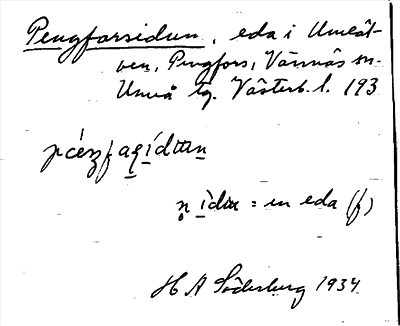 Pengforsidun, eda i Umeälv-
ven, Pengfors, Vännäs sn.
Umeå tg. Västerb. l. 193
ídɯn
ìdɯ = en eda (f)
H A Söderberg 1934